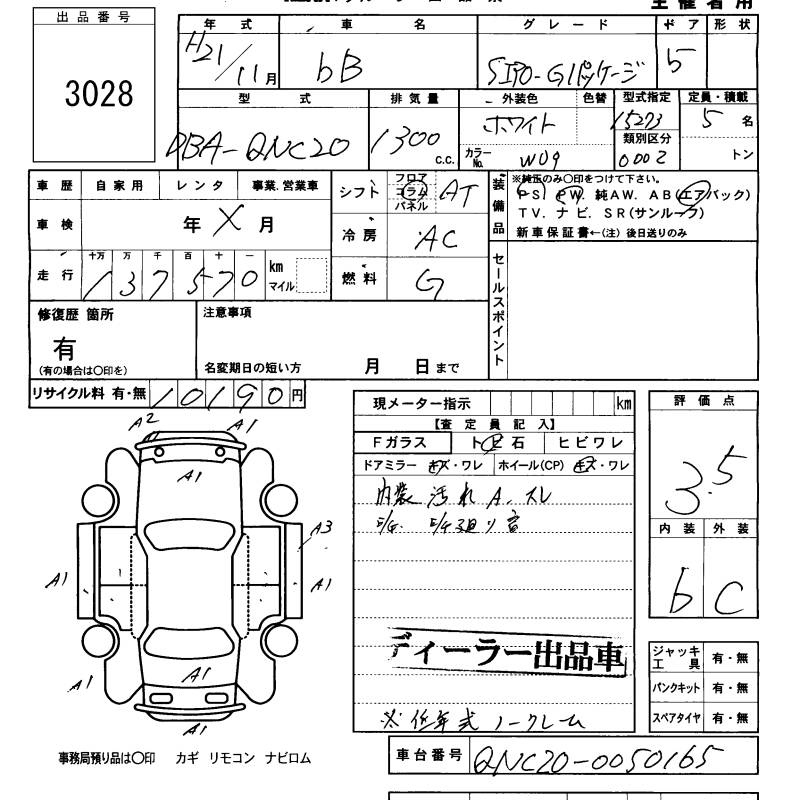 主催者用
出品番号
3028
年式 車名 グレード ドア 形状
H21/11月 bB S180-Gパッケージ 5
型式 排気量 外装色 色替 型式指定 定員・積載
DBA-QNC20 1300 c.c. ホワイト カラーNo. W09 15273 類別区分 0002 5名 トン
車歴 自家用 レンタ 事業.営業車
車検 年 X 月
走行 十万 万 千 百 十 一
137570 km マイル
シフト フロア コラム パネル AT
冷房 AC
燃料 G
装備品 ※純正のみ〇印をつけて下さい。
PS. PW. 純AW. AB(エアバック)
TV. ナビ. SR(サンルーフ)
新車保証書←(注) 後日送りのみ
セールスポイント
修復歴 箇所
有
(有の場合は〇印を)
注意事項
名変期日の短い方 月 日まで
リサイクル料 有・無 10190円
現メーター指示 km
【査定員記入】
Fガラス トビ石 ヒビワレ
ドアミラー キズ・ワレ ホイール(CP) キズ・ワレ
内装 汚れ A. スレ
ディーラー出品車
※ 低年式 ノークレーム
評価点
3.5
内装 外装
b C
ジャッキ 工具 有・無
パンクキット 有・無
スペアタイヤ 有・無
A2 A1
A1
A3
A1 A1
A1 A1
A1
事務局預り品は〇印 カギ リモコン ナビロム
車台番号 QNC20-0050165